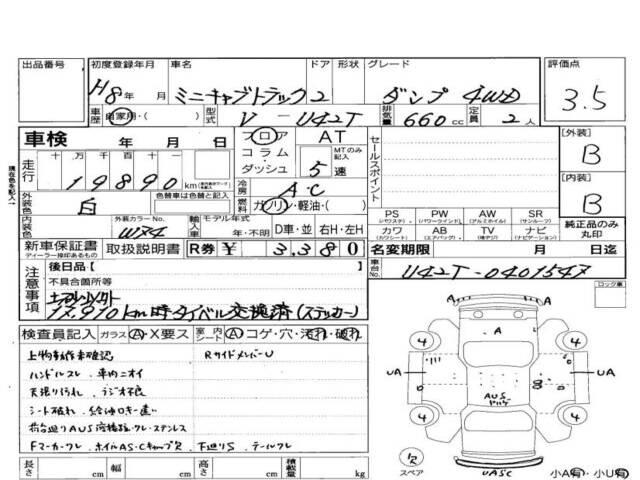 出品番号 初度登録年月 車名 ドア 形状 グレード 評価点
H8年 月 ミニキャブトラック 2 ダンプ 4WD 3.5
車歴 自家用・( ) 型式 V-U42T 排気量 660cc 定員 2人
車検 年 月 日 フロア AT
コラム・ MTのみ記入
ダッシュ 5速
セールスポイント
[外装] B
[内装] B
走行 十万千百十一 19890km
冷房 AC
外装色 白 色替車は色替と記入 燃料 ガソリン・軽油・( )
内装色 外装カラーNo. W×4 輸入車 モデル年式 年・不明 D車・並 右H・左H
PS (パワステ) PW (パワーウインド) AW (アルミホイル) SR (サンルーフ)
カワ (カワシート) AB (エアバッグ) TV (電デジ) ナビ (ナビゲーション)
純正品のみ丸印
新車保証書 ディーラー捺印あるもの 取扱説明書 R券 ¥ 3,380
名変期限 月 日迄
車台No. U42T-0401547
現在色を記入
注意事項 後日品[ ]
不具合箇所等
17,910km時タイベル交換済(ステッカー)
ロック車
検査員記入 ガラス A・X要ス 室内シート A コゲ・穴・汚れ・破れ
上物動作未確認 RサイドメンバーU
ハンドルスレ 車内ニオイ
天張り汚れ ラジオ不良
シート破れ
荷台廻りAUS 溶接跡・クレ・ステンレス
Fマーカークレ ホイルAS・Cキャップ欠 下廻りS テールクレ
A A
4 4
UA UA
AUSサビ
4 4
欠
スペア UASC 小A有・小U有
長さ cm 幅 cm 高さ cm 積載量 kg